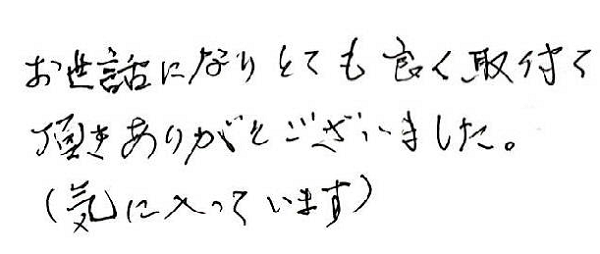 お世話になりとても良く取付て
頂きありがとございました。
(気に入っています)